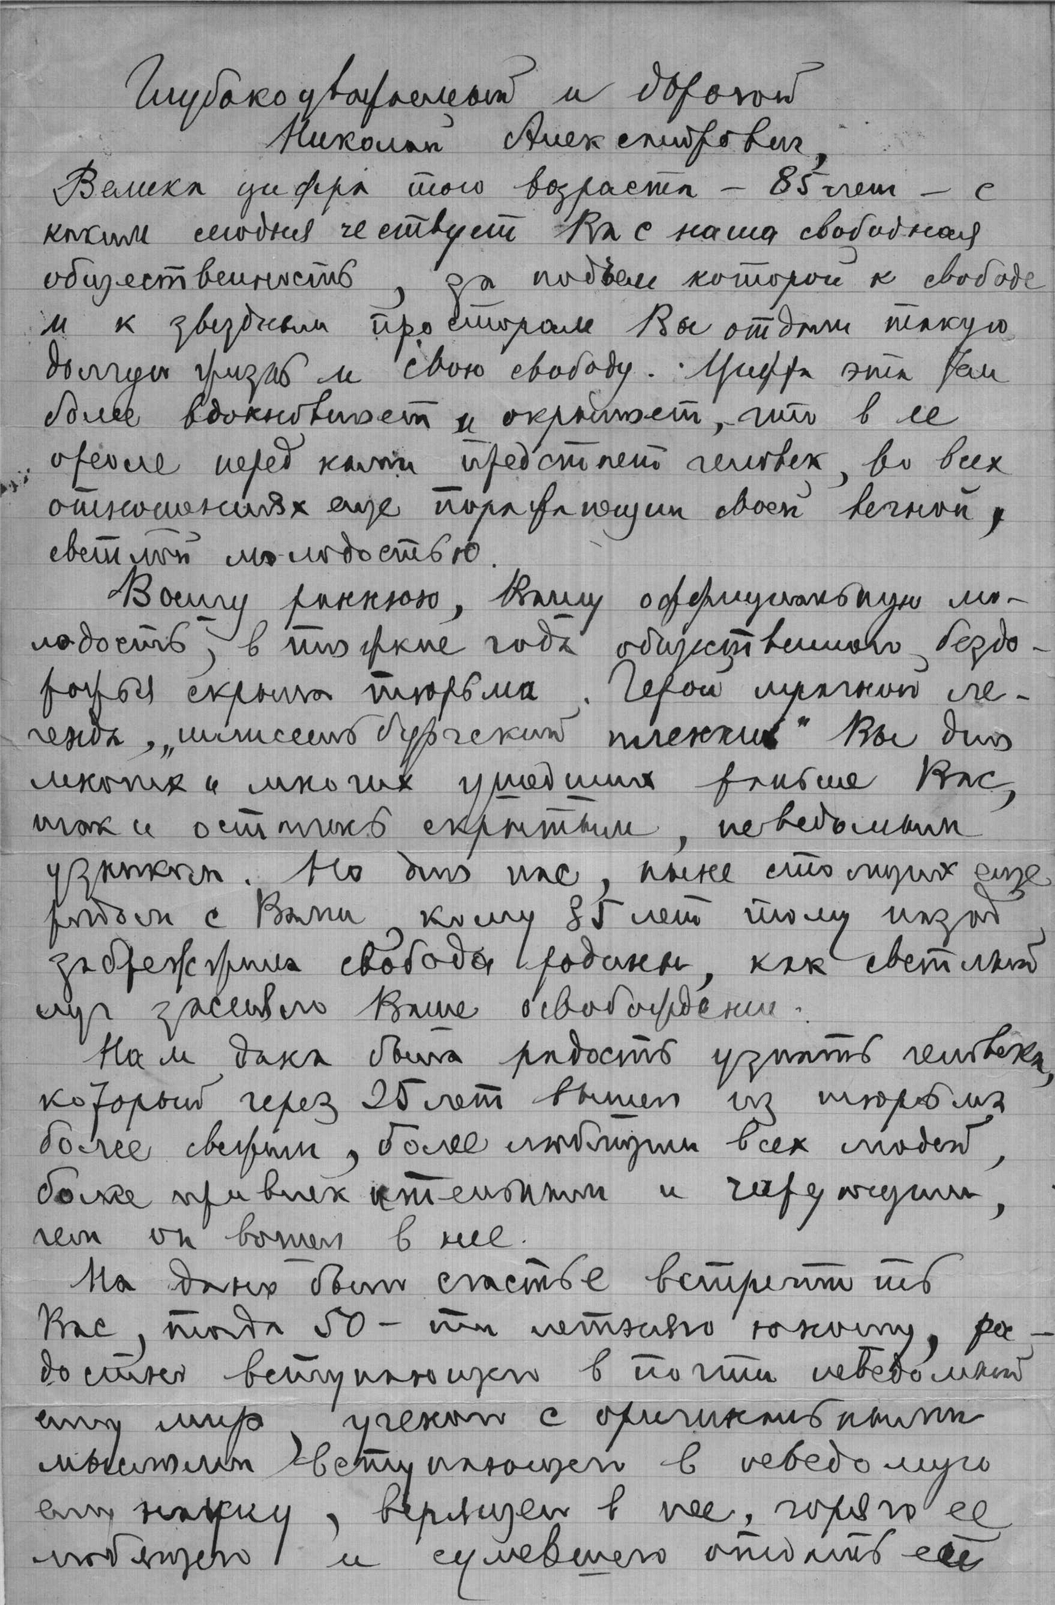 Глубокоуважаемый и дорогой
Николай Александрович,
Велика цифра того возраста – 85 лет – с
каким сегодня чествует Вас наша свободная
общественность, за подъем которой к свободе
и к звездным просторам Вы отдали такую
долгую жизнь и свою свободу. Цифра эта тем
более вдохновляет и окрыляет, что в ее
ореоле перед нами предстает человек, во всех
отношениях еще поражающий своей вечной,
светлой молодостью.
Вашу раннюю, Вашу официальную мо-
лодость, в тяжкие года общественного бездо-
рожья скрыла тюрьма. Герой мрачной ле-
генды, „шлиссельбургский пленник" Вы для
многих и многих ушедших раньше Вас,
так и остались скрытым, неведомым
узником. Но для нас, ныне стоящих еще
рядом с Вами, кому 35 лет тому назад
забрежжила свобода родины, как светлый
луч засияло Ваше освобождение.
Нам дана была радость узнать человека,
который через 25 лет вышел из тюрьмы
более свежим, более любящим всех людей,
более привлекательным и чарующим,
чем он вошел в нее.
На долю было счастье встретить
Вас, тогда 50-ти летнего юношу, ра-
достно вступающего в почти неведомый
ему мир, ученого с оригинальными
мыслями вступающего в неведомую
ему науку, верящего в нее, горячо ее
любящего и сумевшего отдать ей